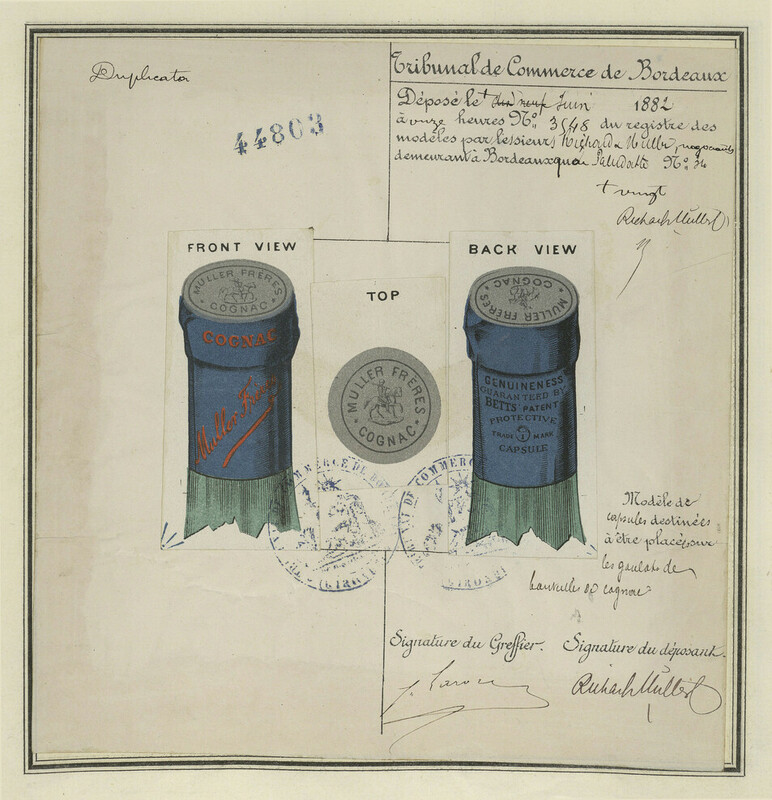 Duplicata
44803
Tribunal de Commerce de Bordeaux
Déposé le + dix neuf Juin 1882
à onze heures No. 3548 du registre des
modèles par les sieurs Richard & Muller, negociants
demeurant à Bordeaux quai No. 34
+ vingt
Richard & Muller
FRONT VIEW
MULLER FRÈRES
COGNAC
COGNAC
Muller Frères
TOP
MULLER FRÈRES
COGNAC
BACK VIEW
MULLER FRÈRES
COGNAC
GENUINENESS
GUARANTEED BY
BETTS' PATENT
PROTECTIVE
TRADE MARK
CAPSULE
DE COMMERCE DE
(GIRONDE)
DE COMMERCE
GIRONDE
Modèle de
capsules destinées
à être placées sur
les goulots de
bouteilles de cognac
Signature du Greffier. Signature du déposant.
Richard & Muller